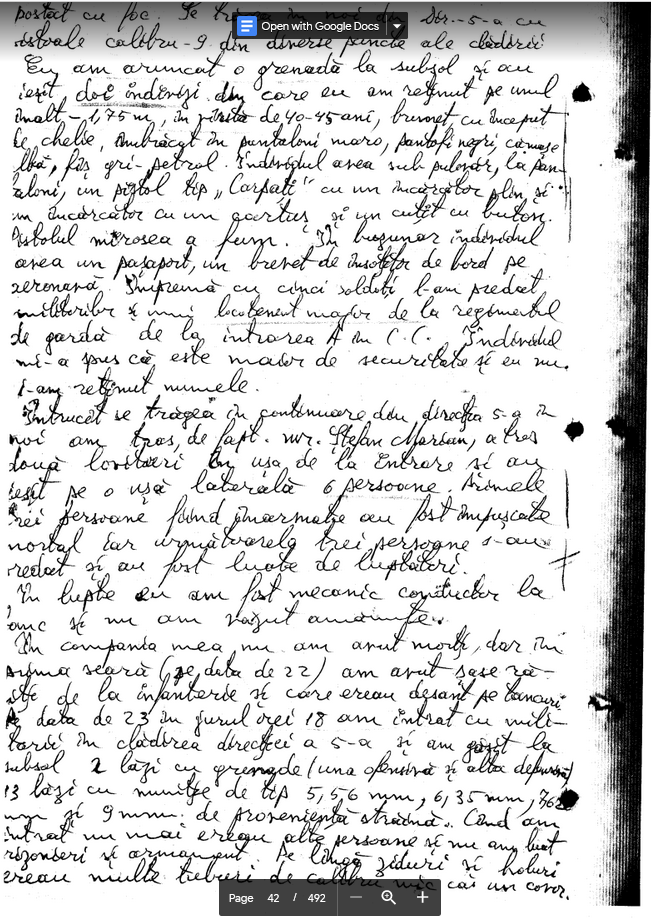 postat cu foc. Se trăgea în noi din Dir.-5-a cu
Open with Google Docs
pistoale calibru-9 din diverse puncte ale clădirii
Eu am aruncat o grenadă la subsol și au
ieșit doi indivizi din care eu am reținut pe unul
înalt-1,75 m, în vîrstă de 40-45 ani, brunet cu început
de chelie, îmbrăcat în pantaloni maro, pantofi negri, cămașe
albă, fîș gri-petrol. Individul avea sub pulovăr, la pan-
taloni, un pistol tip „Carpați" cu un încărcător plin și
un încărcător cu un cartuș și un cuțit cu buton.
Pistolul mirosea a fum. În buzunar individul
avea un pașaport, un brevet de însoțitor de bord pe
aeronavă. Împreună cu cinci soldați l-am predat
militarilor și unui locotenent major de la regimentul
de gardă de la intrarea A în C.C. Individul
mi-a spus că este maior de securitate și eu nu
i-am reținut numele.
Întrucît se trăgea în continuare din direcția 5-a în
noi am tras, de fapt mr. Ștefan Marian, a tras
două lovituri în ușa de la intrare și au
ieșit pe o ușă laterală 6 persoane. Primele
trei persoane fiind înarmate au fost împușcate
mortal iar următoarele trei persoane s-au
predat și au fost luate de luptători.
În lupte eu am fost mecanic conductor la
tanc și nu am văzut amănunte.
În compania mea nu am avut morți, dar în
prima seară (pe data de 22) am avut șase ră-
niți de la infanterie și care ereau desant pe tancuri
Pe data de 23 în jurul orei 18 am intrat cu mili-
tarii în clădirea direcției a 5-a și am găsit la
subsol 2 lăzi cu grenade (una ofensivă și alta defensivă)
13 lăzi cu muniție de tip 5,56 mm, 6,35 mm, 7,62
mm și 9 mm. de proveniență străină. Cînd am
intrat nu mai ereau alte persoane și nu am luat
prizonieri și armament. Pe lîngă ziduri și holuri
ereau multe tuburi de calibru mic ca un covor.
Page 42 / 492